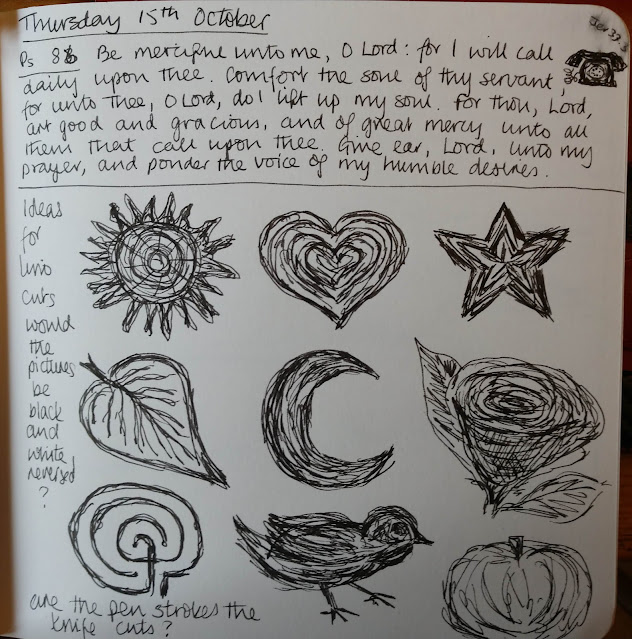 Thursday 15th October
Jer 33.3
Ps 86 Be merciful unto me, O Lord: for I will call
daily upon thee. Comfort the soul of thy servant,
for unto Thee, O Lord, do I lift up my soul. For thou, Lord,
art good and gracious, and of great mercy unto all
them that call upon thee. Give ear, Lord, unto my
prayer, and ponder the voice of my humble desires.
Ideas
for
lino
cuts
would
the
pictures
be
black
and
white
reversed
?
are the pen strokes the
knife cuts?